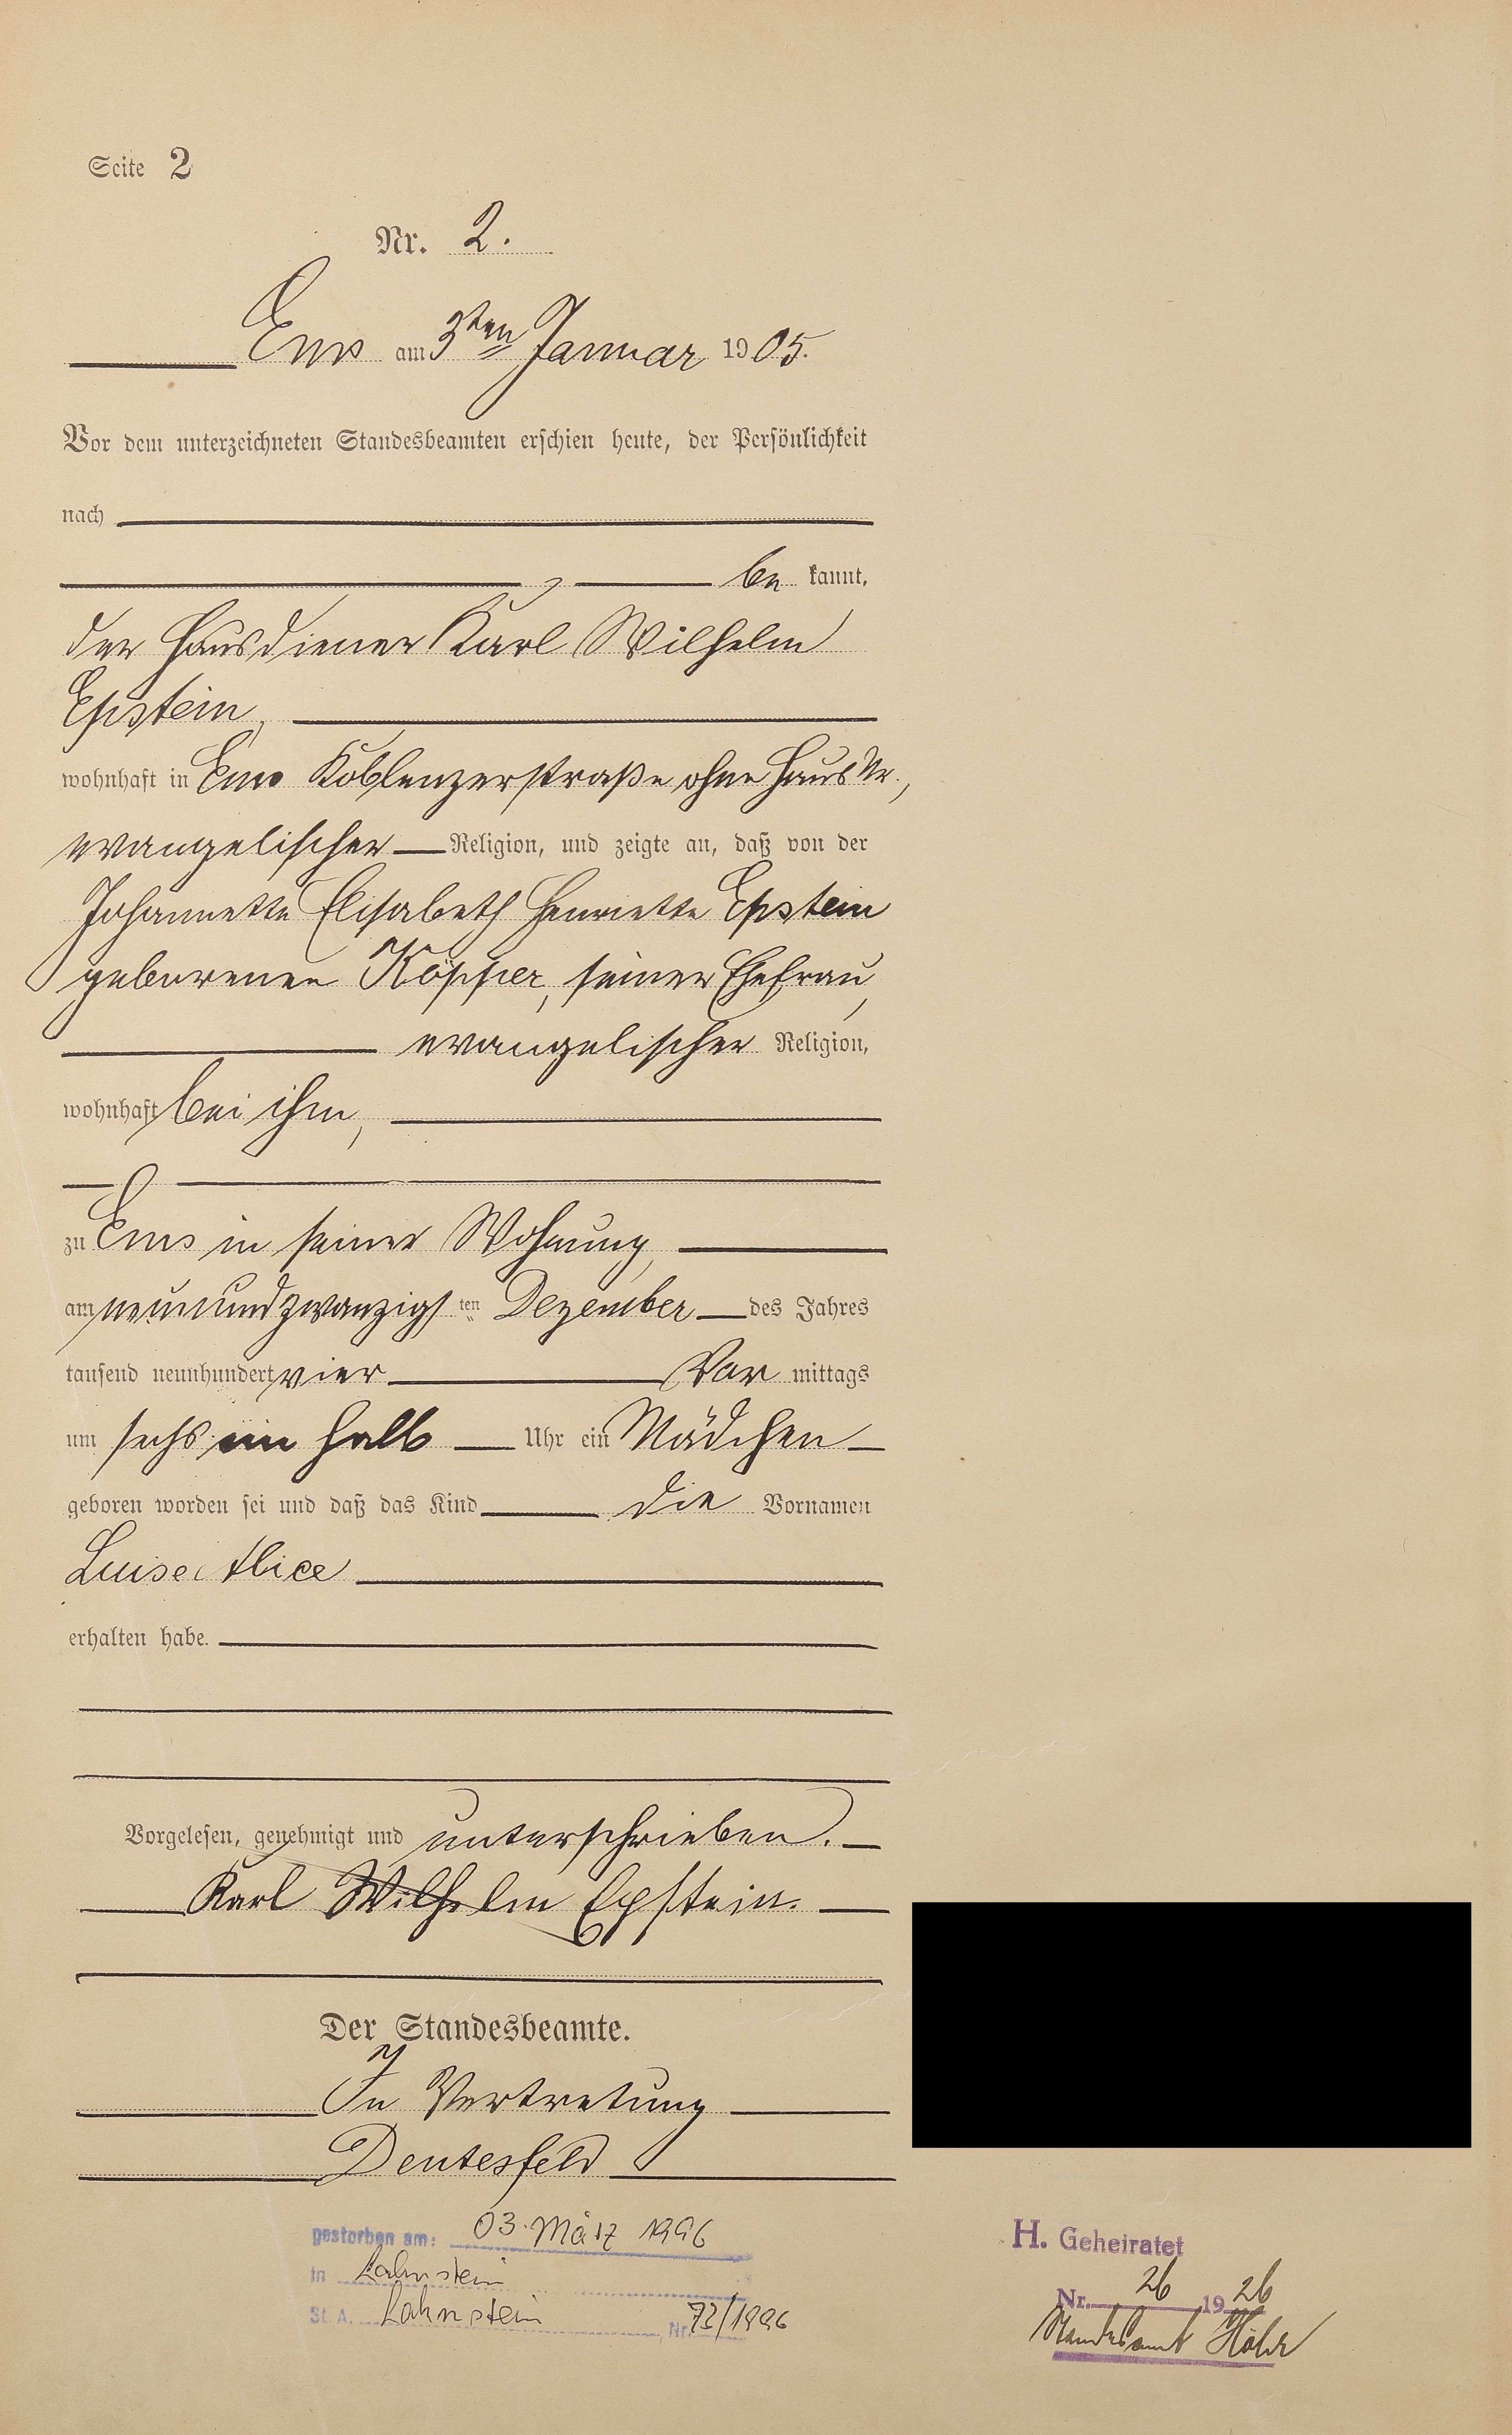 Seite 2
Nr. 2.
Ems am 3ten Januar 1905.
Vor dem unterzeichneten Standesbeamten erschien heute, der Persönlichkeit
nach
be kannt,
der Hausdiener Karl Wilhelm
Epstein,
wohnhaft in Ems Koblenzerstraße ohne Haus Nr.,
evangelischer Religion, und zeigte an, daß von der
Johannette Elisabeth Henriette Epstein
geborenen Köpper, seiner Ehefrau,
evangelischer Religion,
wohnhaft bei ihm,
zu Ems in seiner Wohnung,
am neunundzwanzigsten Dezember des Jahres
tausend neunhundert vier Vor mittags
um sechs ein halb Uhr ein Mädchen
geboren worden sei und daß das Kind die Vornamen
Luise Alice
erhalten habe.
Vorgelesen, genehmigt und unterschrieben.
Karl Wilhelm Epstein.
Der Standesbeamte.
In Vertretung
Dentesfeld
gestorben am: 03. März 1996
in Lahnstein
St. A. Lahnstein Nr. 73/1996
H. Geheiratet
Nr. 26 1926
Standesamt Höhr